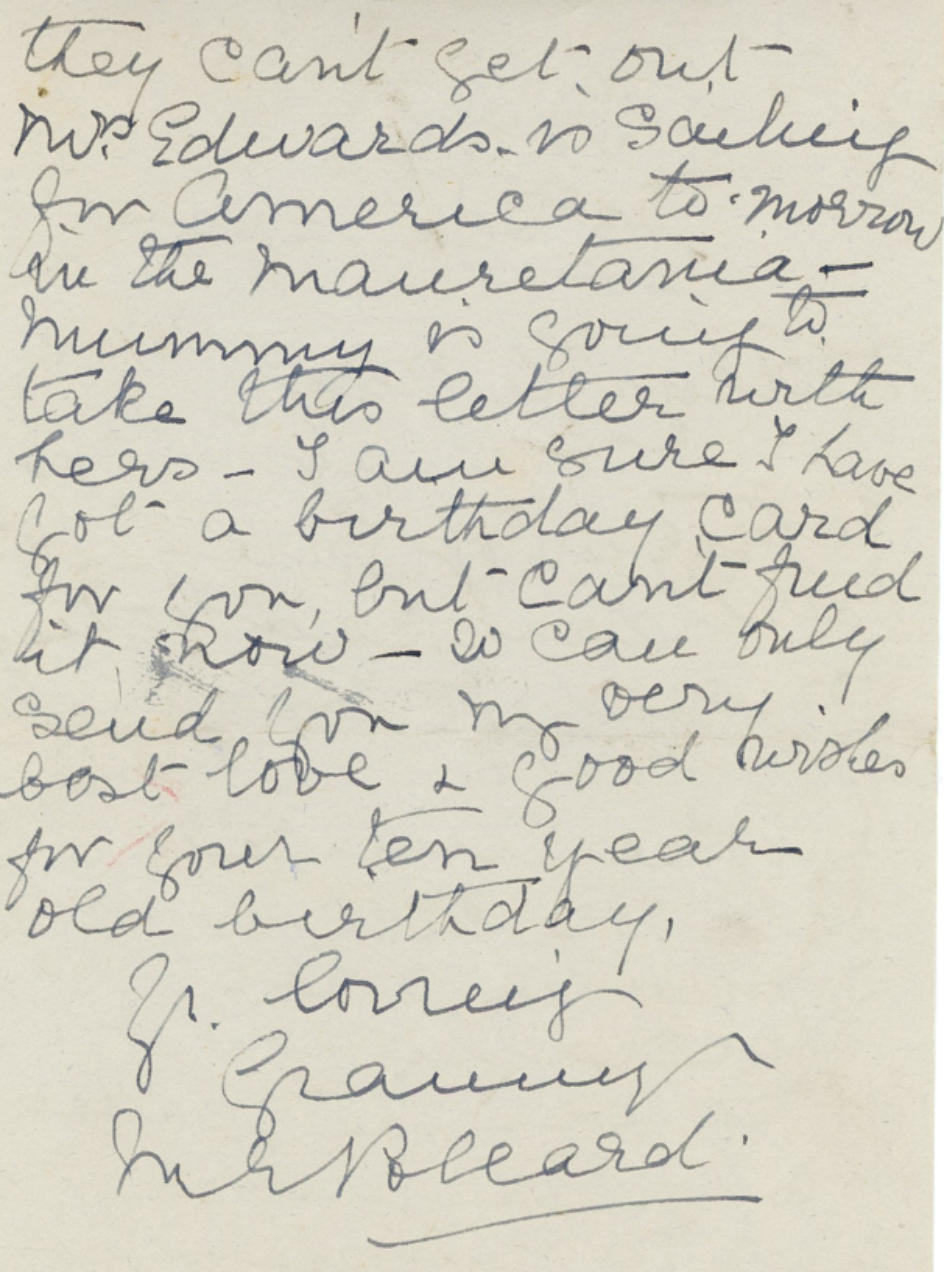 they can't get out
Mrs. Edwards. is Sailing
for America to-morrow
in the Mauretania -
Mummy is going to
take this letter with
hers - I am sure I have
got a birthday card
for you, but can't find
it now - so can only
send you my very
best love & good wishes
for your ten year
old birthday,
Yr. loving
Granny
Pollard.